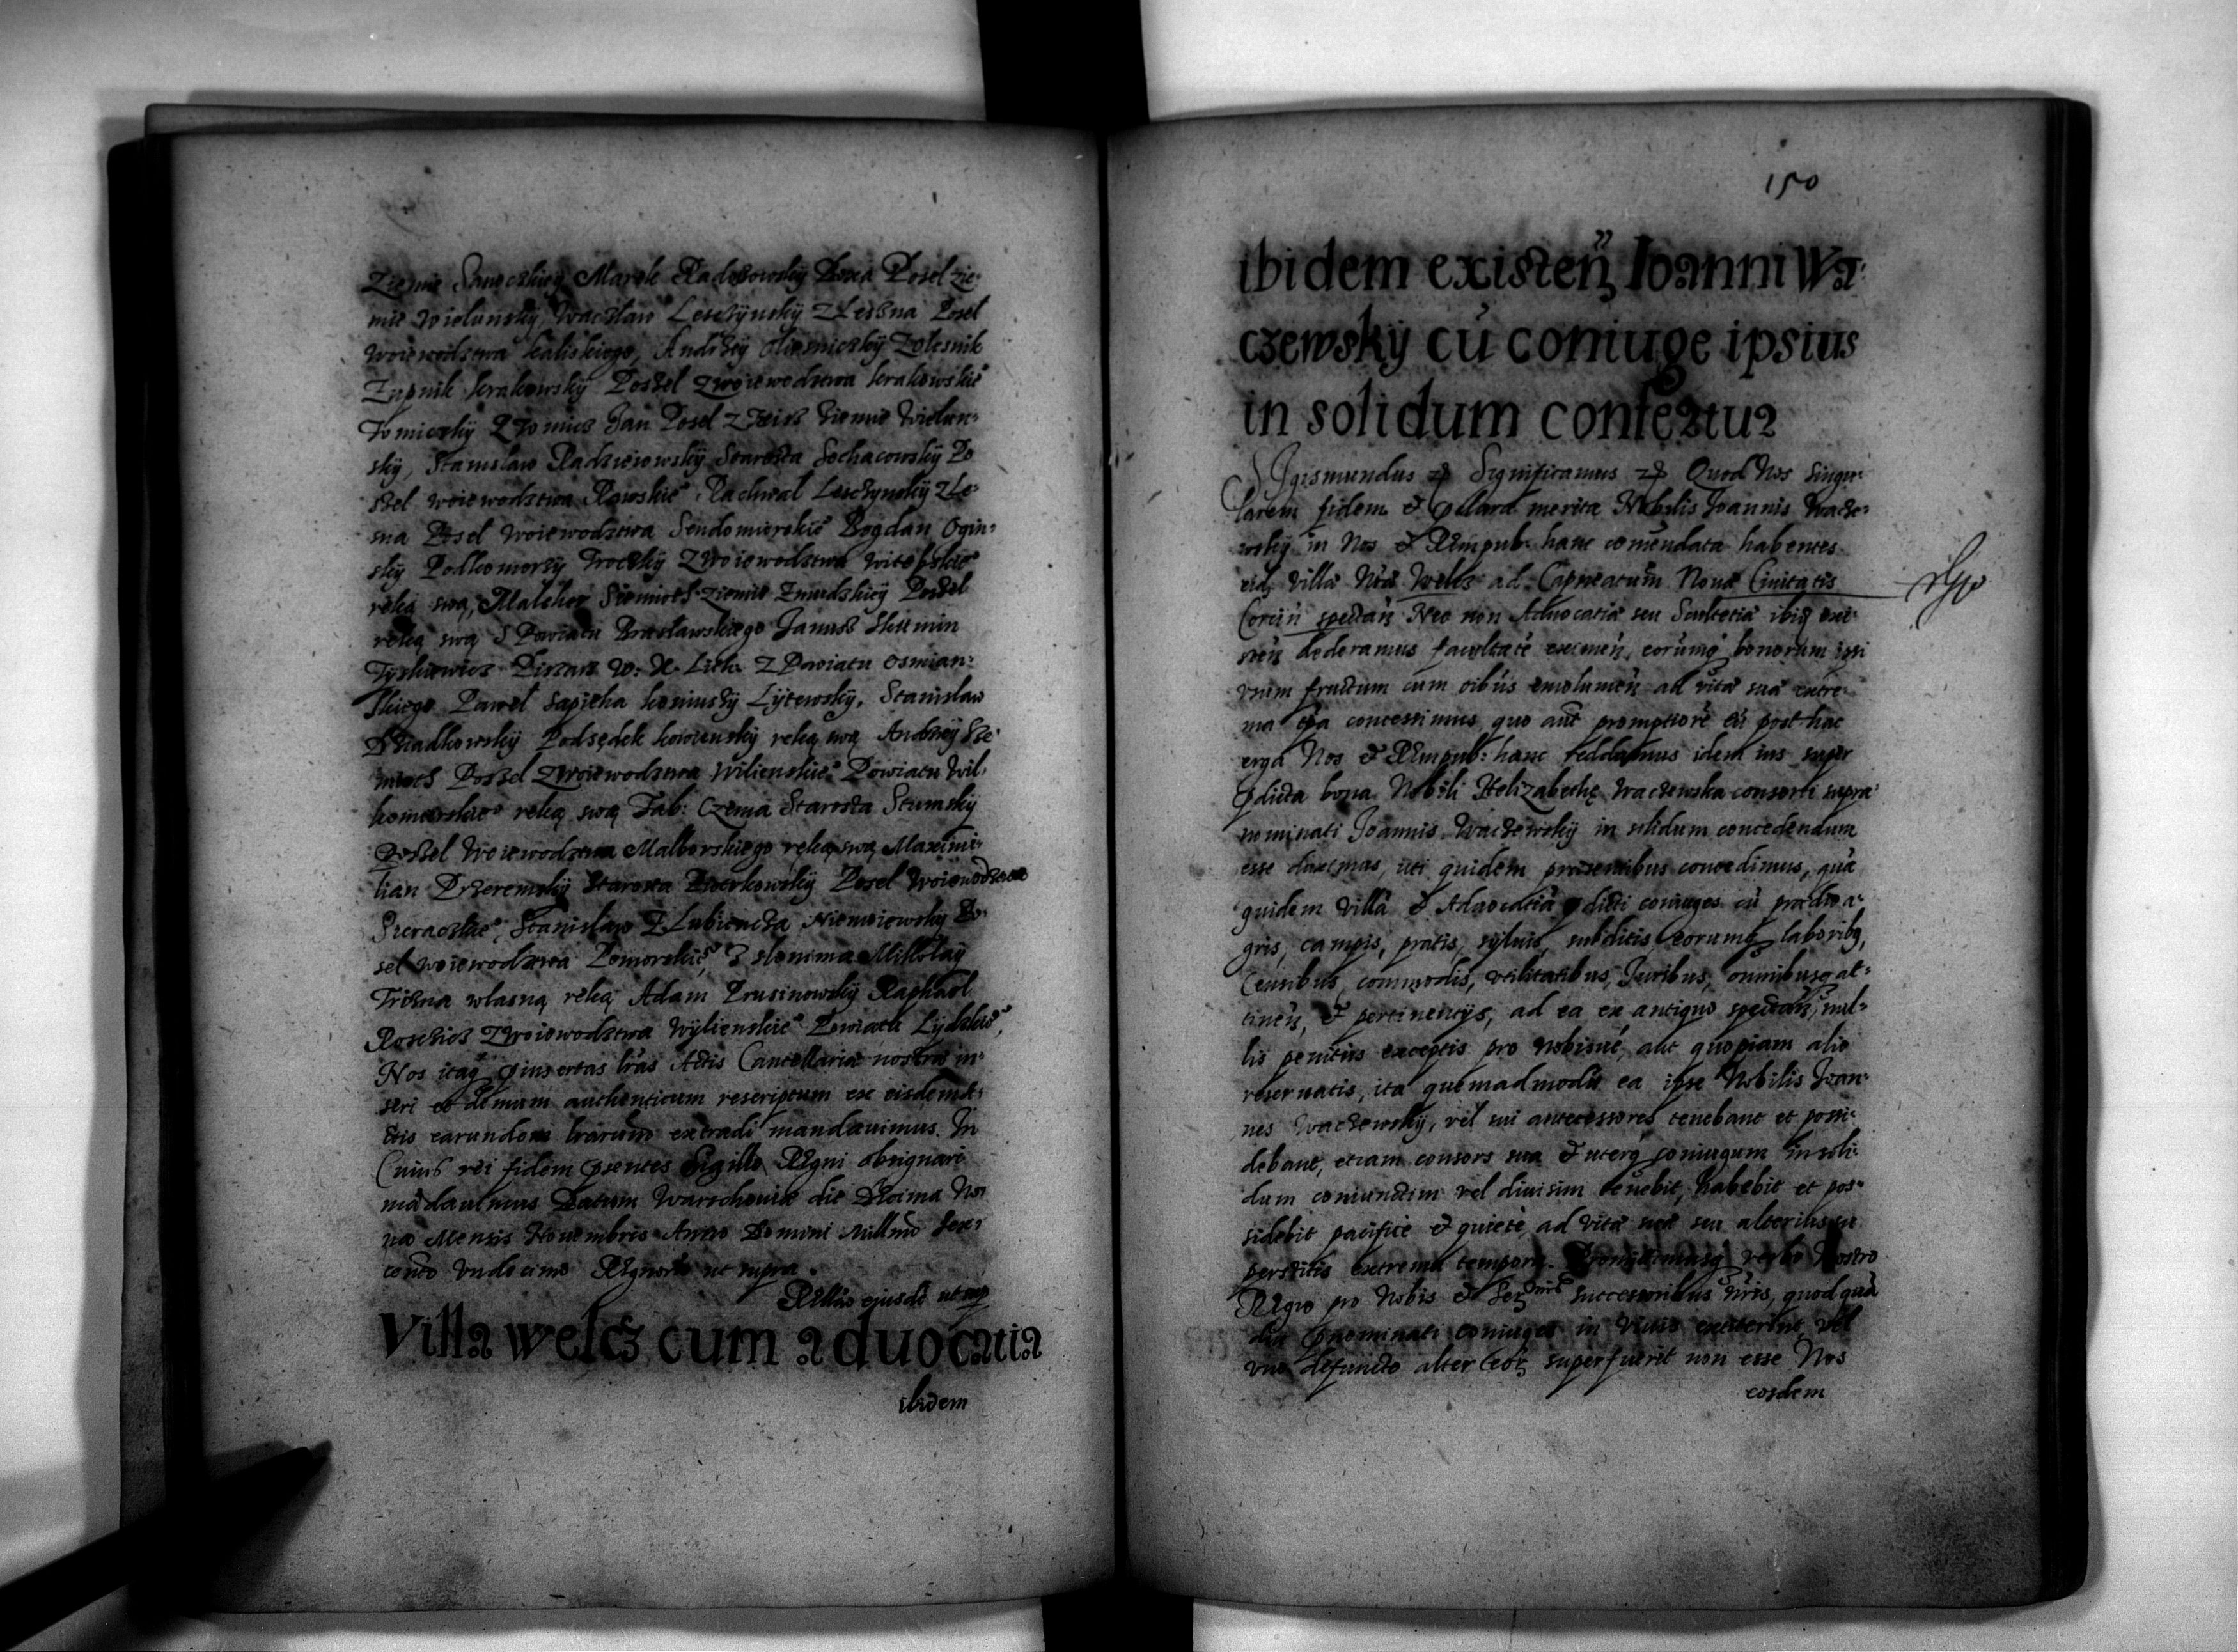 Ziemie Sanockiey Marek Radoszowsky Posel zie-
mie Wielunsky, Wacslaw Lesczynsky Z Lessna Posel
Woiewodztwa kaliskiego, Andrzey Olesnicky Zolesnik
Zupnik krakowsky Poszel z woiewodztwa krakowskie°
Jan Posel z ziemie Wielun-
sky, Stanislaw Radzieiowsky Starosta Sochacowsky Po
szel woiewodztwa Rawskie° Rachwal Lesczynsky z Le-
sna Posel Woiewodztwa Sendomierskie° Bogdan Ogin-
sky Podkomorzy Trocky z Woiewodztwa witebskie°
reką swą, Malcher ziemie Zmudzkiey Poszel
reką swą S Powiatu Braslawskiego Janusz Skumin
Tyszkiewicz Pisarz W: X. Lith. Z Powiatu Osmian-
skiego Pawel Sapieha koniuszy Lytewsky, Stanislaw
Podsędek kowiensky reką swą Andrzey
Poszel z woiewodztwa Wilienskie° Powiatu Wil-
komirskie° reką swą Fab: Czema Starosta Stumsky
Poszel Woiewodztwa Malborskiego ręką swą Maximi-
lian Przeremsky Starosta Posel Woiewodztwa
Sieradzkie°, Stanislaw Z Lubieniecza Niemoiewsky Po-
sel woiewodztwa Pomorskie°, Z slonima Mikolay
Trizna wlasną reką Adam Prusinowsky Raphael
z Woiewodztwa Wylienskie° Powiatu Lydzkie°,
Nos itaq pinsertas lras Actis Cancellariae nostrae in-
seri et demum authenticum rescriptum ex eisdem A-
ctis earundem lrarum extradi mandauimus. In
Cuius rei fidem psentes Sigillo Regni obsignari
mandauimus Datum Warschouiae die Decima No-
na Mensis Nouembris Anno Domini Millmo Sex-
cento vndecimo Regnorum ut supra.
Rellao ejusde ut sup
Villa welcz cum aduocatia
ibidem
150
ibidem existen Ioanni Wa-
czewsky cu coniuge ipsius
in solidum confertur
Sigismundus Significamus Quod Nos Singu-
larem fidem & pclara merita Nobilis Joannis Wacze-
wsky in Nos & Rempub: hanc comendata habentes
eiq villa Nra Welcz ad Capneatum Noua Ciuitatis
Corcin spectan Nec non Aduocatia seu Scultetia ibiq exi-
sten dederamus facultate eximen, eorumq bonorum ipsi
vsum fructum cum oibus emolumen ad vita sua extre-
ma tpa concessimus quo aut promptiore eu post hac
erga Nos & Rempub: hanc reddamus idem ius super
pdicta bona Nobili Helizabethę Waczewska consorti supra-
nominati Joannis Waczewsky in solidum concedendum
esse duximus, uti quidem praesentibus concedimus, qua
quidem villa & Aduocatia pdicti coniuges cu praedio a-
gris, campis, pratis, syluis, subditis eorumq laboribq,
Censibus, commodis, vtilitatibus, Juribus, omnibusq at-
tinen, & pertinencys, ad ea ex antiquo spectan, nul-
lis penitus exceptis pro nobisue, aut quopiam alio
reseruatis, ita quemadmodu ea ipse Nobilis Joan-
nes Waczewsky, vel sui antecessores tenebant et possi-
debant, etiam consors sua & uterq coniugum in soli-
dum coniunctim vel diuisim tenebit, habebit et pos-
sidebit pacifice & quiete, ad vita sua seu alterius su
perstitis extrema tempora. Promittimusq verbo Nostro
Regio pro Nobis & Sermis successoribus nris, quod qua
diu pnominati coniuges in viuis extiterint vel
vno defuncto alter eor superfuerit non esse Nos
eosdem